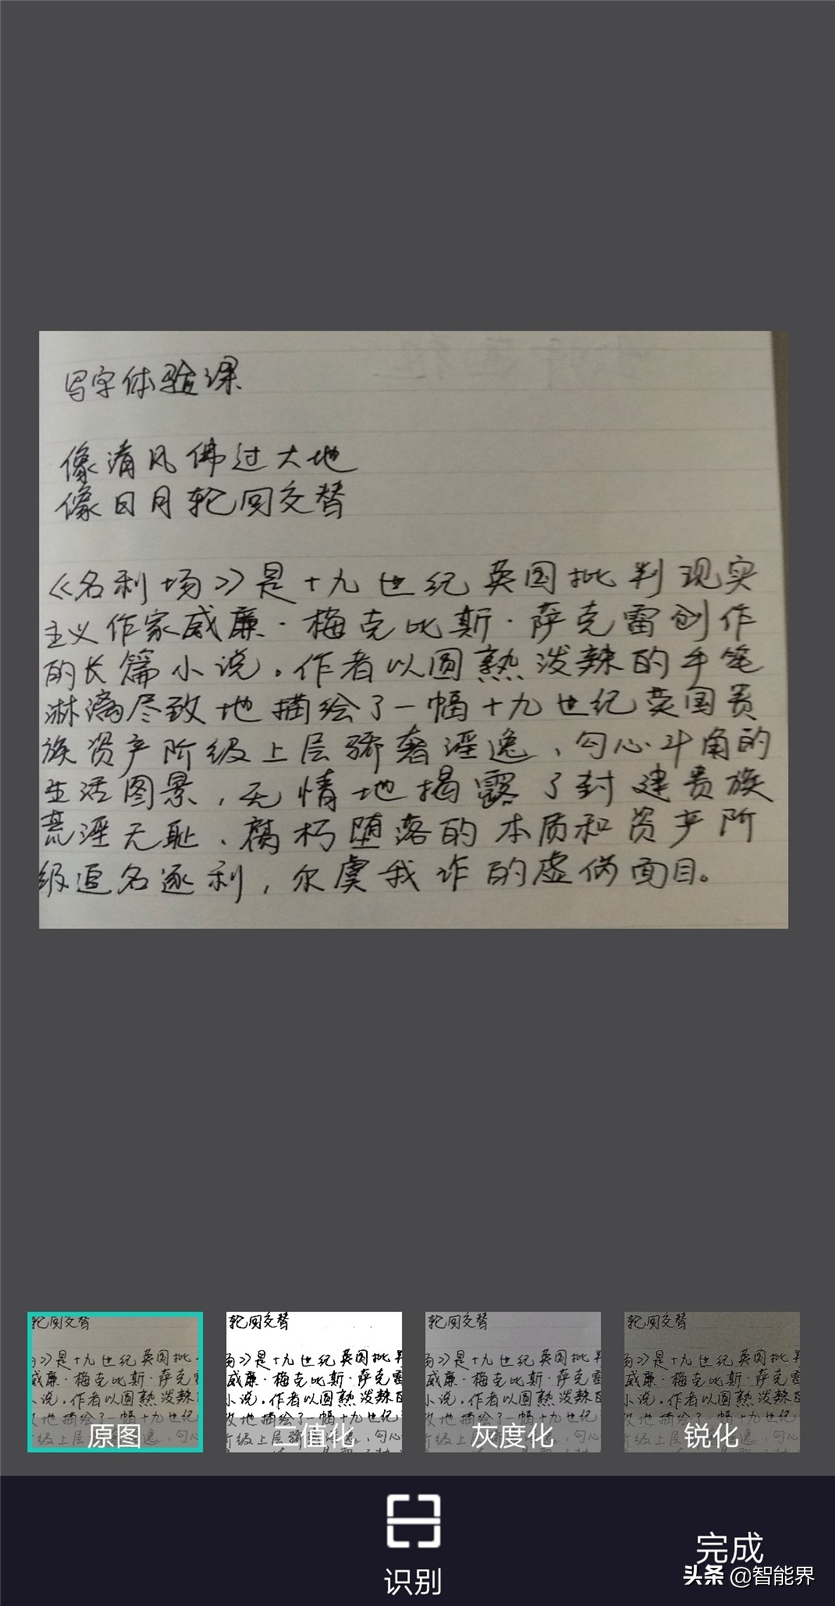 写字体验课
像清风佛过大地
像日月轮回交替
《名利场》是十九世纪英国批判现实
主义作家威廉·梅克比斯·萨克雷创作
的长篇小说。作者以圆熟泼辣的手笔
淋漓尽致地描绘了一幅十九世纪英国贵
族资产阶级上层骄奢淫逸、勾心斗角的
生活图景，无情地揭露了封建贵族
荒淫无耻、腐朽堕落的本质和资产阶
级追名逐利，尔虞我诈的虚伪面目。
轮回交替
场》是十九世纪英国批
威廉·梅克比斯·萨克
小说。作者以圆熟泼辣
原图
轮回交替
场》是十九世纪英国批判
威廉·梅克比斯·萨克雷
小说。作者以圆熟泼辣的
二值化
轮回交替
场》是十九世纪英国批判
威廉·梅克比斯·萨克雷
小说。作者以圆熟泼辣的
灰度化
轮回交替
场》是十九世纪英国批判
威廉·梅克比斯·萨克雷
小说。作者以圆熟泼辣的
锐化
识别
完成
头条 @智能界